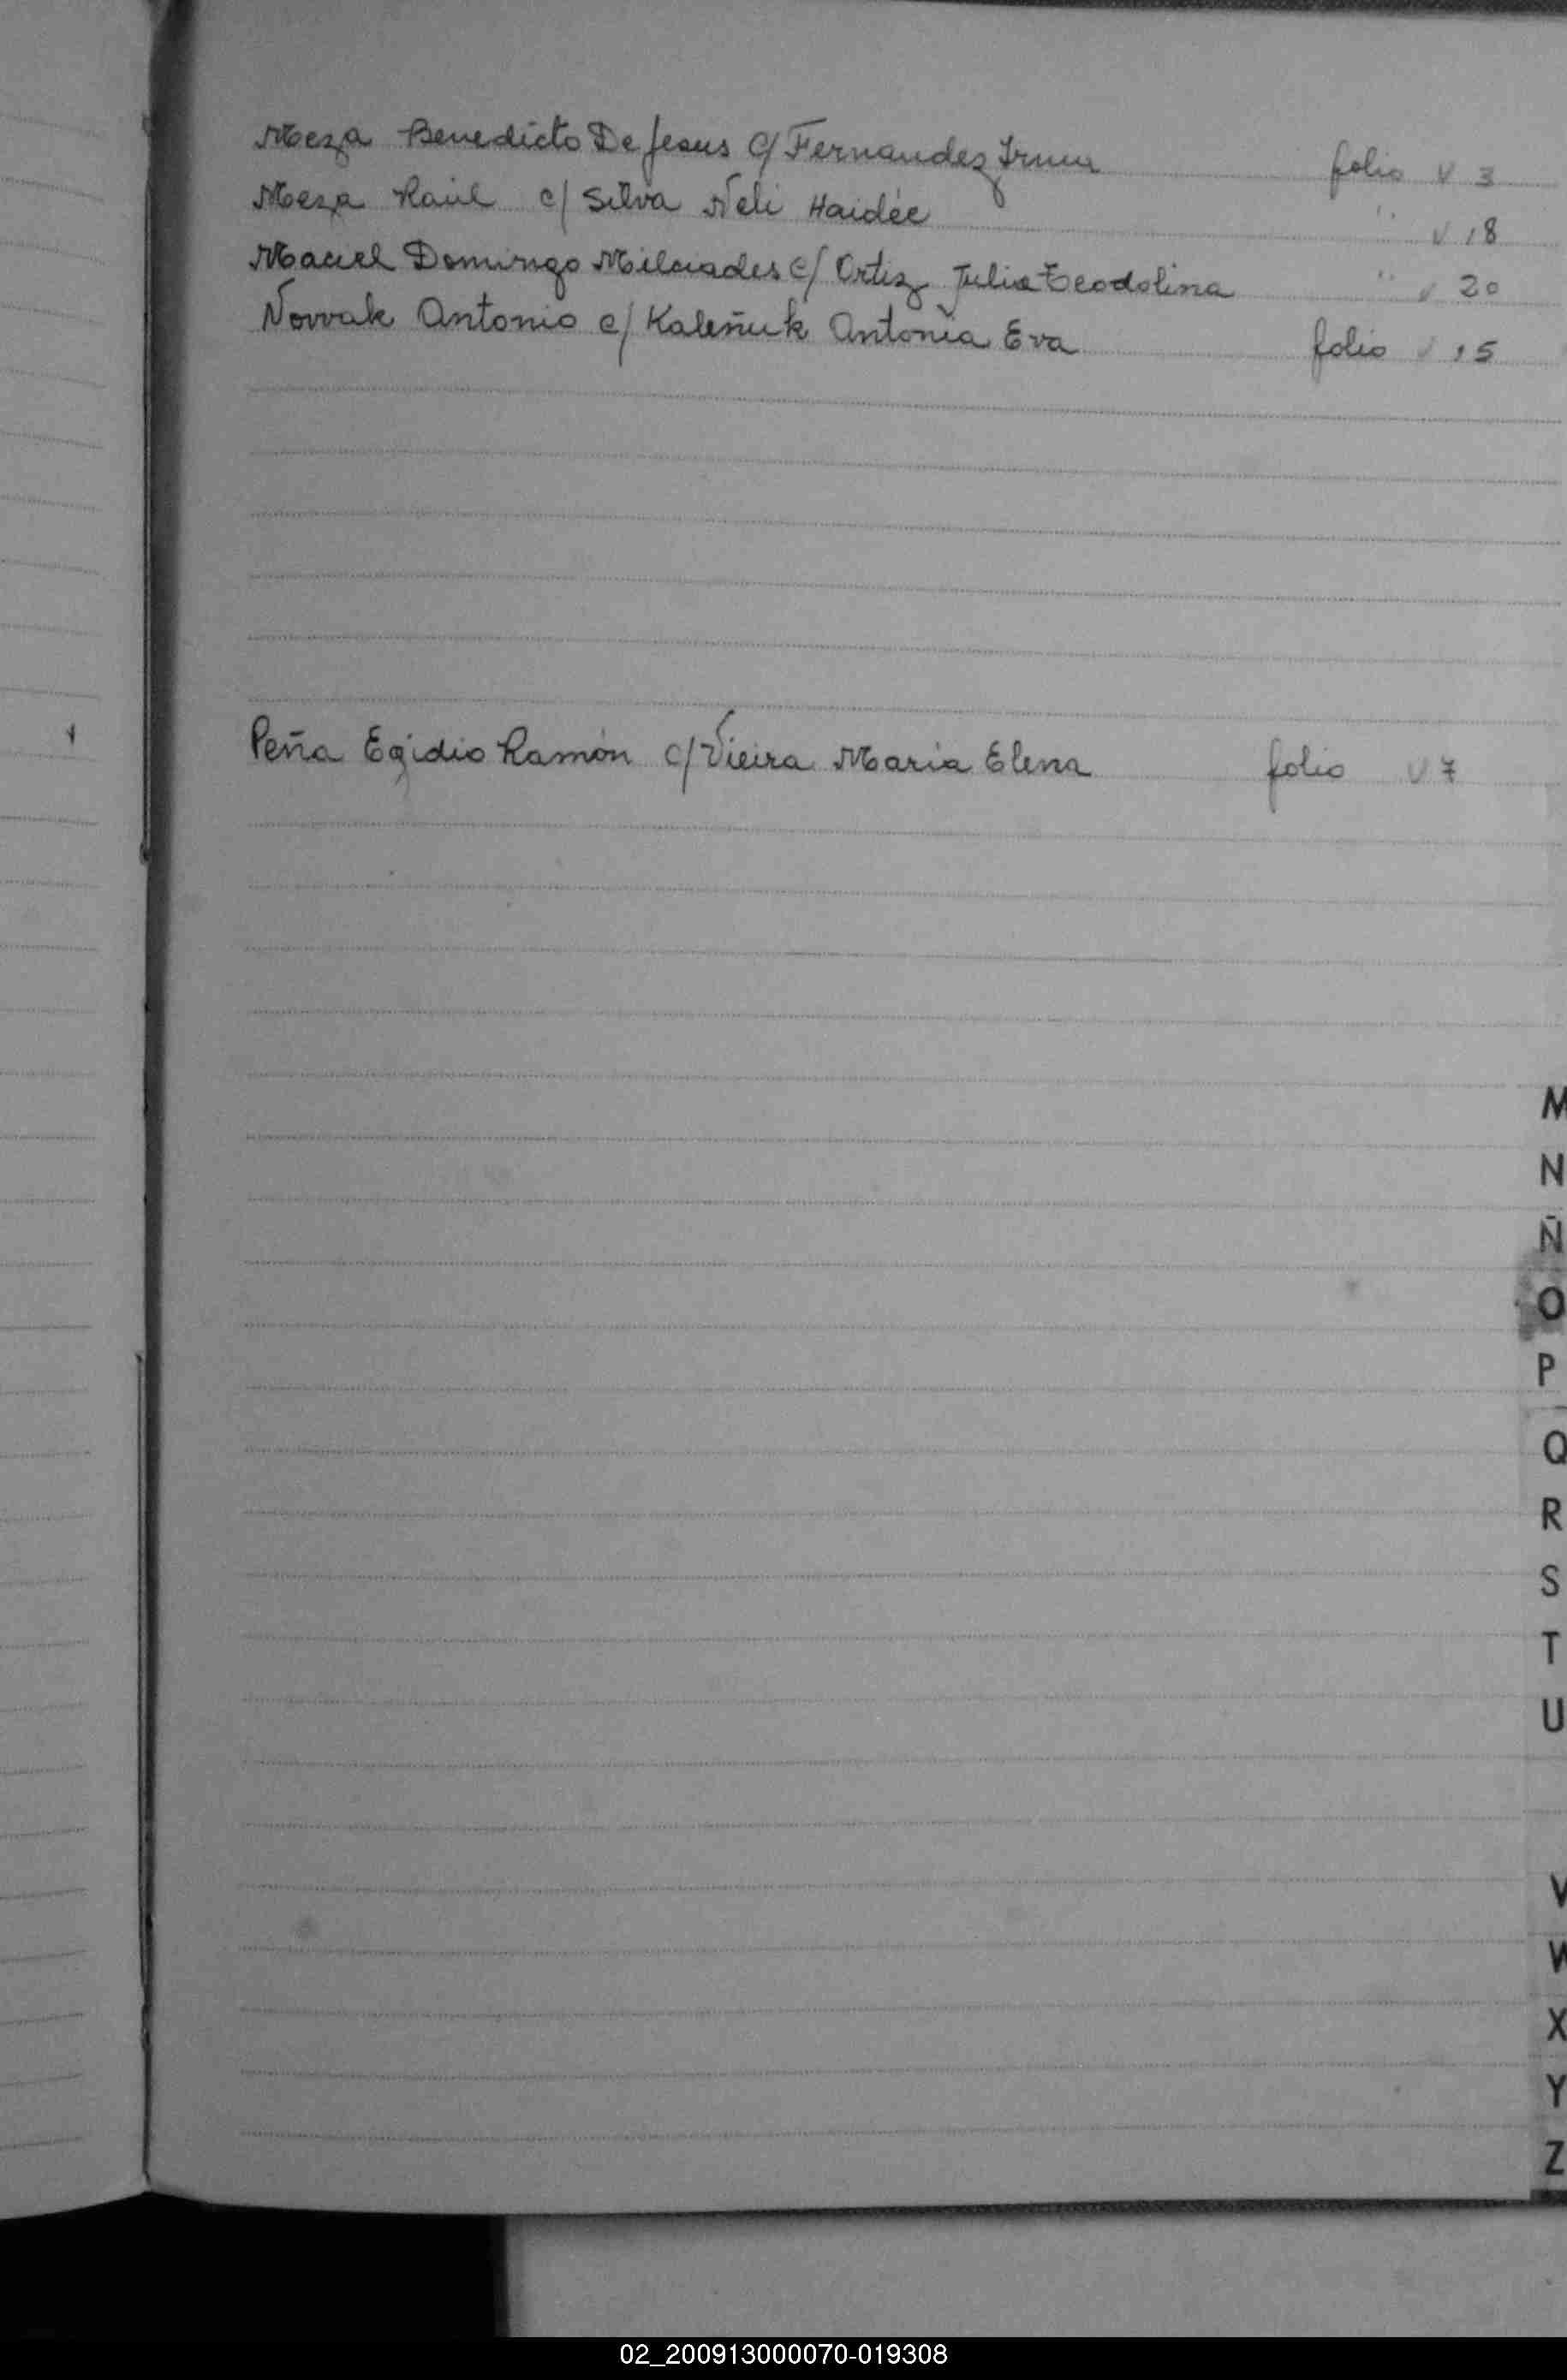 Meza Benedicto De Jesus c/ Fernandez Irma folio v 3
Meza Raúl c/ Silva Neli Haidée " v 18
Maciel Domingo Milciades c/ Ortiz Julia Teodolina " v 20
Novvak Antonio c/ Kaleñuk Antonia Eva folio v 15
Peña Egidio Ramón c/ Vieira María Elena folio v 7
M
N
Ñ
O
P
Q
R
S
T
U
V
W
X
Y
Z
02_200913000070-019308